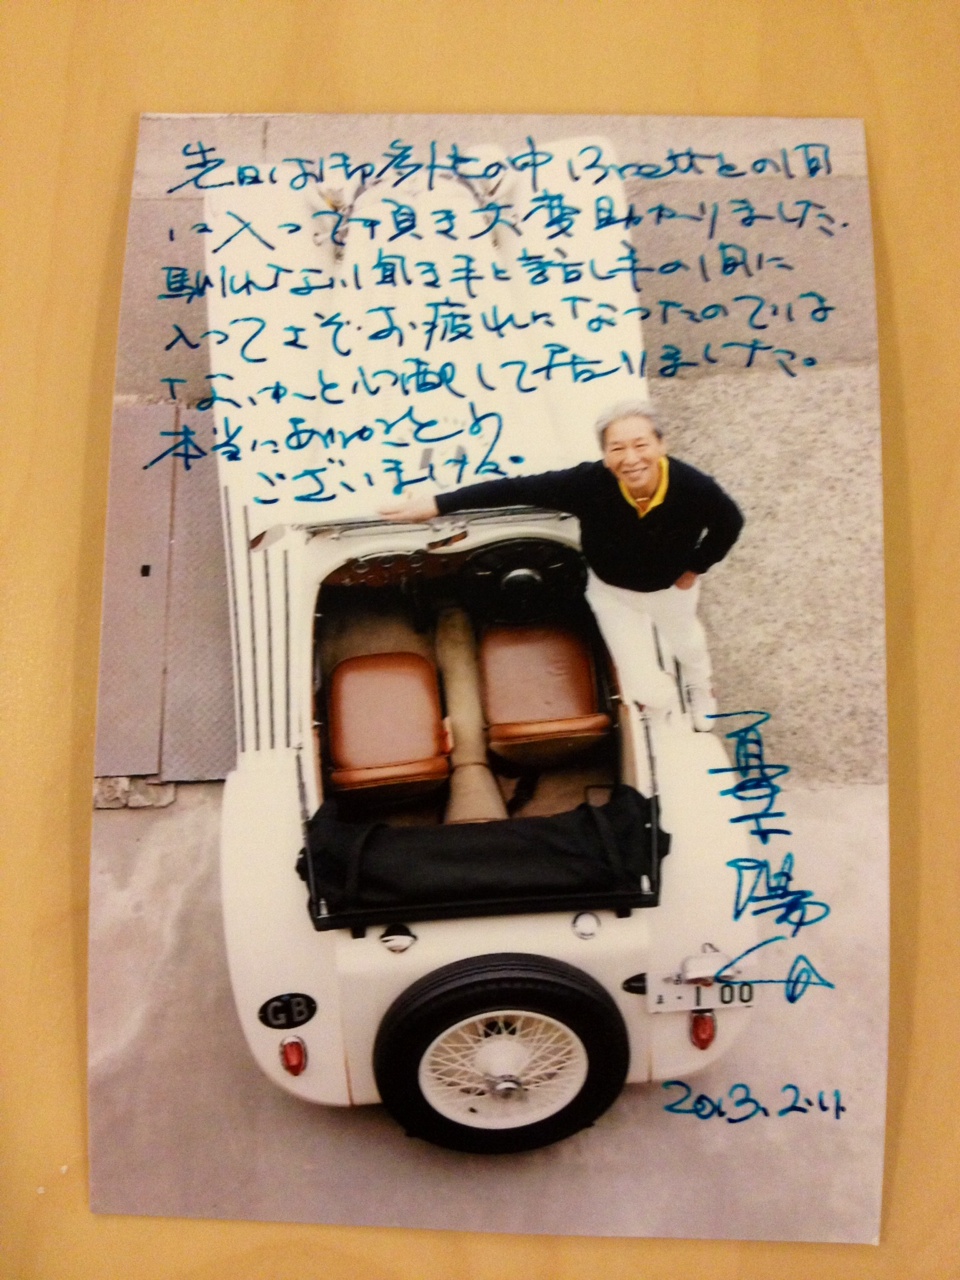 先日は御多忙の中Brettとの間
に入って頂き大変助かりました.
馴れない聞き手と話し手の間に
入ってさぞお疲れになったのでは
ないかと心配して居りました。
本当にありがとう
ございました。
陽一
GB
100
2013.2.11